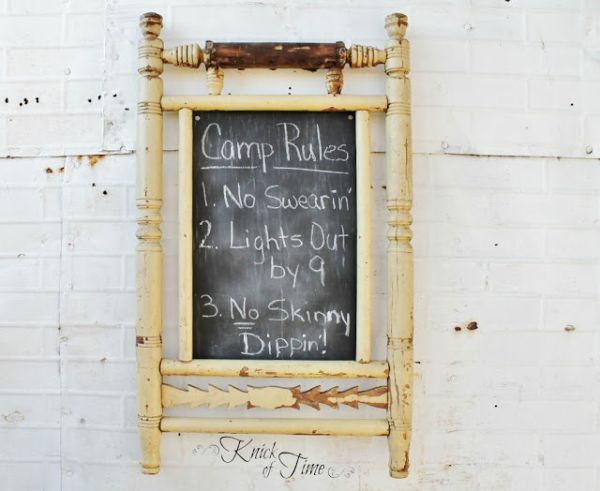 Camp Rules
1. No Swearin'
2. Lights Out
by 9
3. No Skinny
Dippin'!
Knick
of Time